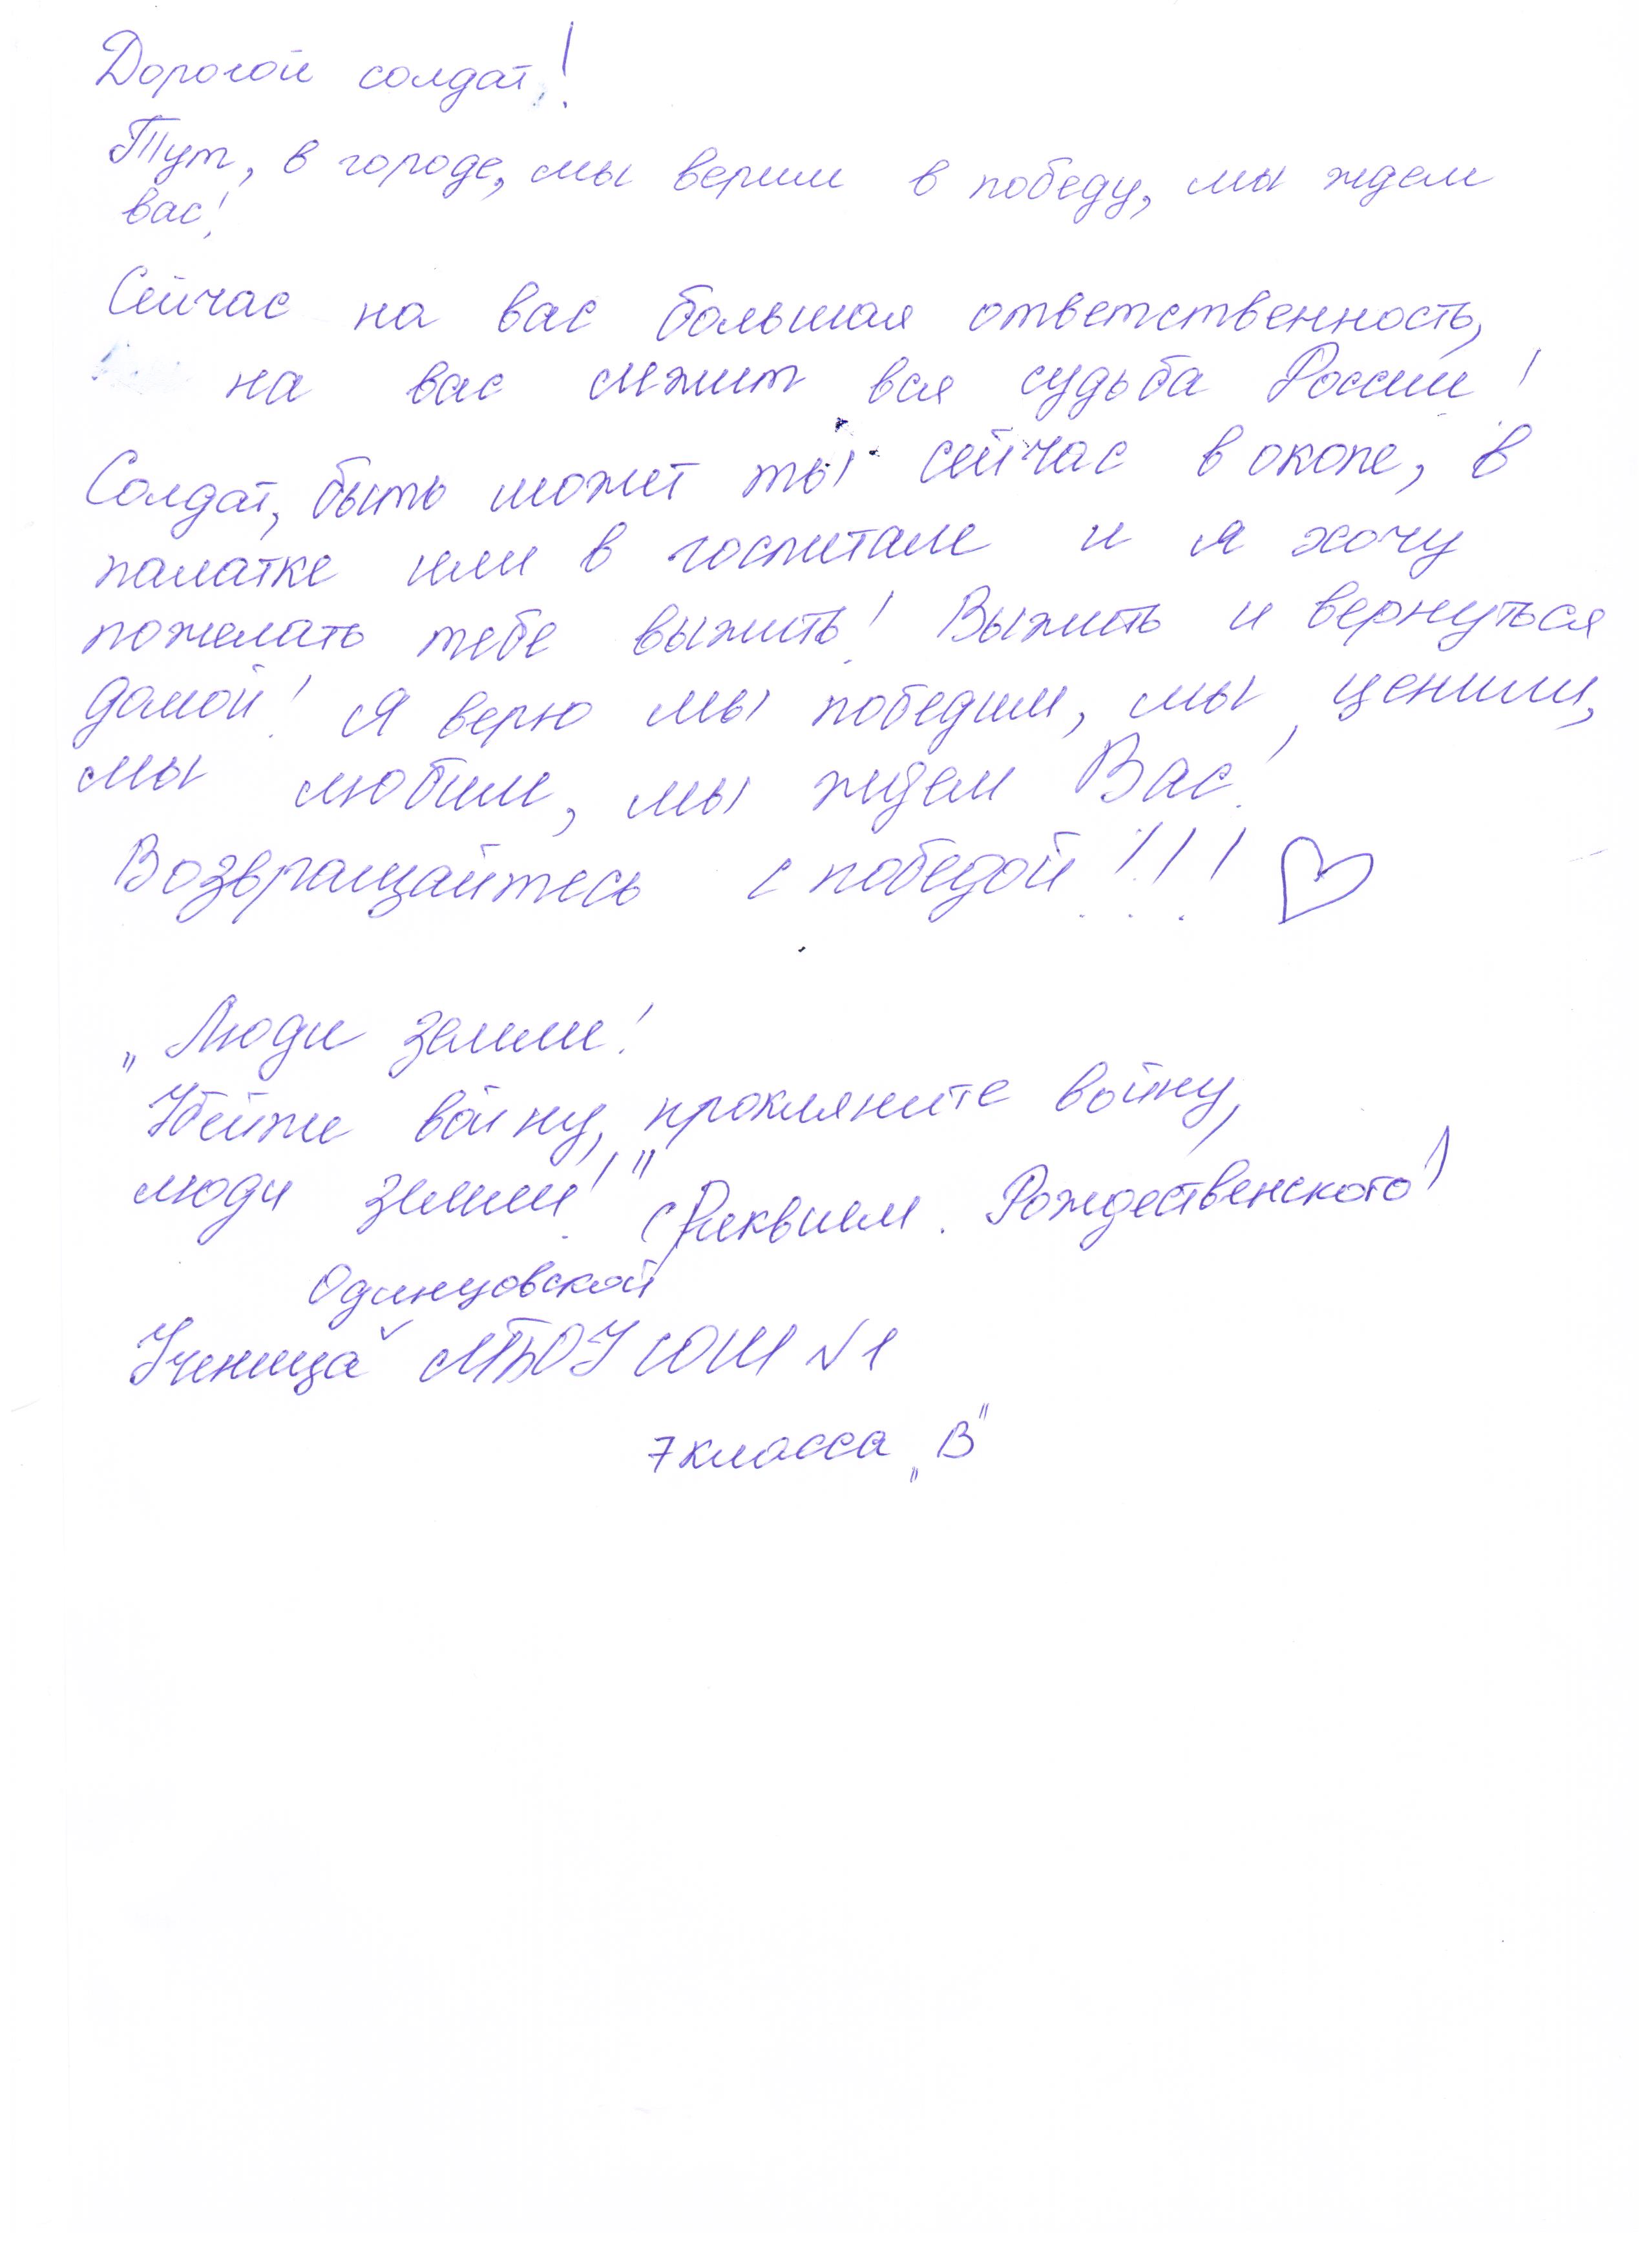 Дорогой солдат!
Тут, в городе, мы верим в победу, мы ждем
вас!
Сейчас на вас большая ответственность,
на вас лежит вся судьба России!
Солдат, быть может ты сейчас в окопе, в
палатке или в госпитале и я хочу
пожелать тебе выжить! Выжить и вернуться
домой! Я верю мы победим, мы ценим,
мы любим, мы ждем Вас!
Возвращайтесь с победой!!!
„Люди земли!
Убейте войну, прокляните войну,
люди земли!" (Реквием. Рождественского)
Одинцовской
Ученица МБОУ СОШ №1
7 класса „В"